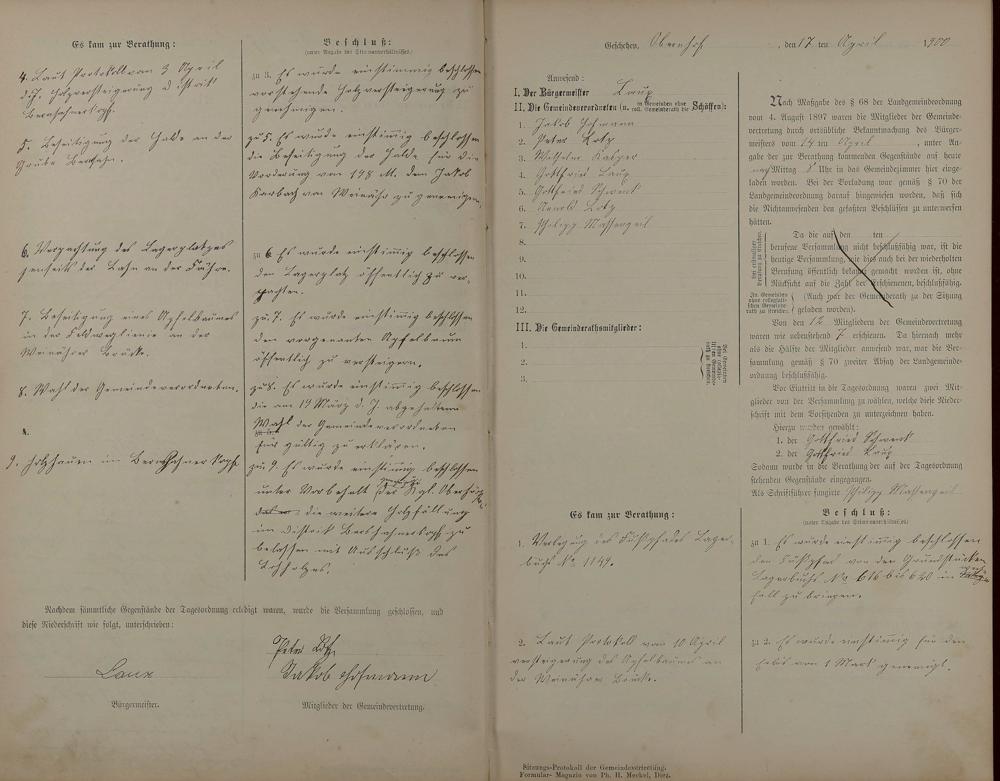 Es kam zur Berathung:
4. Laut Protokoll vom 3 April
d. J. Holzversteigerung distrikt
5. Beseitigung der Halde an der
Grube
6. Verpachtung des Lagerplatzes
jenseits der Lahn an der Fähre.
7. Beseitigung eines Apfelbaumes
in der Feldweglinie an der
Weinährer Brücke.
8. Wahl der Gemeindeverordneten.
9. Holzhauen im
Beschluß:
(unter Angabe des Stimmenverhältnisses)
Es wurde einstimmig beschlossen
vorstehende Holzversteigerung zu
genehmigen.
zu 5. Es wurde einstimmig beschlossen
die Beseitigung der Halde für die
Forderung von 198 M. dem Jakob
von Weinähr zu genehmigen.
zu 6. Es wurde einstimmig beschlossen
den Lagerplatz öffentlich zu ver-
pachten.
zu 7. Es wurde einstimmig beschlossen
den vorgenannten Apfelbaum
öffentlich zu versteigern.
zu 8. Es wurde einstimmig beschlossen
die am 19 März d. J. abgehaltene
Wahl der Gemeindeverordneten
für gültig zu erklären.
zu 9. Es wurde einstimmig beschlossen
unter Vorbehalt der Kgl.
die weitere Holzfällung
im Distrikt zu
belassen mit Ausschluß des
Nachdem sämmtliche Gegenstände der Tagesordnung erledigt waren, wurde die Versammlung geschlossen, und
diese Niederschrift wie folgt, unterschrieben:
Peter
Jakob Hofmann
Bürgermeister.
Mitglieder der Gemeindevertretung.
Geschehen, Obernhof, den 17 ten April 1900
Anwesend:
I. Der Bürgermeister
II. Die Gemeindeverordneten (u. in Gemeinden ohne coll. Gemeinderath die Schöffen):
1. Jakob Hofmann
2. Peter
3. Wilhelm Kasper
4. Gottfried
5. Gottfried Schwenk
6.
7. Philipp Massengeil
8.
9.
10.
11.
12.
III. Die Gemeinderathsmitglieder:
1.
2.
3.
Nach Maßgabe des § 68 der Landgemeindeordnung
vom 4. August 1897 waren die Mitglieder der Gemeinde-
vertretung durch ortsübliche Bekanntmachung des Bürger-
meisters vom 14 ten April, unter An-
gabe der zur Berathung kommenden Gegenstände auf heute
nachMittag 8 Uhr in das Gemeindezimmer hier einge-
laden worden. Bei der Vorladung war gemäß § 70 der
Landgemeindeordnung darauf hingewiesen worden, daß sich
die Nichtanwesenden den gefaßten Beschlüssen zu unterwerfen
hätten.
Da die auf den ten
berufene Versammlung nicht beschlußfähig war, ist die
heutige Versammlung, wie dies auch bei der wiederholten
Berufung öffentlich bekannt gemacht worden ist, ohne
Rücksicht auf die Zahl der Erschienenen, beschlußfähig.
(Auch war der Gemeinderath zu der Sitzung
geladen worden).
Von den 12 Mitgliedern der Gemeindevertretung
waren wie nebenstehend 7 erschienen. Da hiernach mehr
als die Hälfte der Mitglieder anwesend war, war die Ver-
sammlung gemäß § 70 zweiter Absatz der Landgemeinde-
ordnung beschlußfähig.
Vor Eintritt in die Tagesordnung waren zwei Mit-
glieder von der Versammlung zu wählen, welche diese Nieder-
schrift mit dem Vorsitzenden zu unterzeichnen haben.
Hierzu wurden gewählt:
1. der Gottfried Schwenk
2. der Gottfried
Sodann wurde in die Berathung der auf der Tagesordnung
stehenden Gegenstände eingegangen.
Als Schriftführer fungirte Philipp Massengeil
Es kam zur Berathung:
1. Verlegung des Fußpfades Lager-
buch No. 1149.
2. Laut Protokoll vom 10 April
versteigerung des Apfelbaumes an
der Weinährer Brücke.
Beschluß:
(unter Angabe des Stimmenverhältnisses)
zu 1. Es wurde einstimmig beschlossen
den Fußpfad von den Grundstücken
Lagerbuchs No. 616 bis 620 in
fall zu bringen.
zu 2. Es wurde einstimmig für den
Erlös von 1 Mark genemigt.
Sitzungs-Protokoll der Gemeindevertretung.
Formular-Magazin von Ph. H. Meckel, Diez.